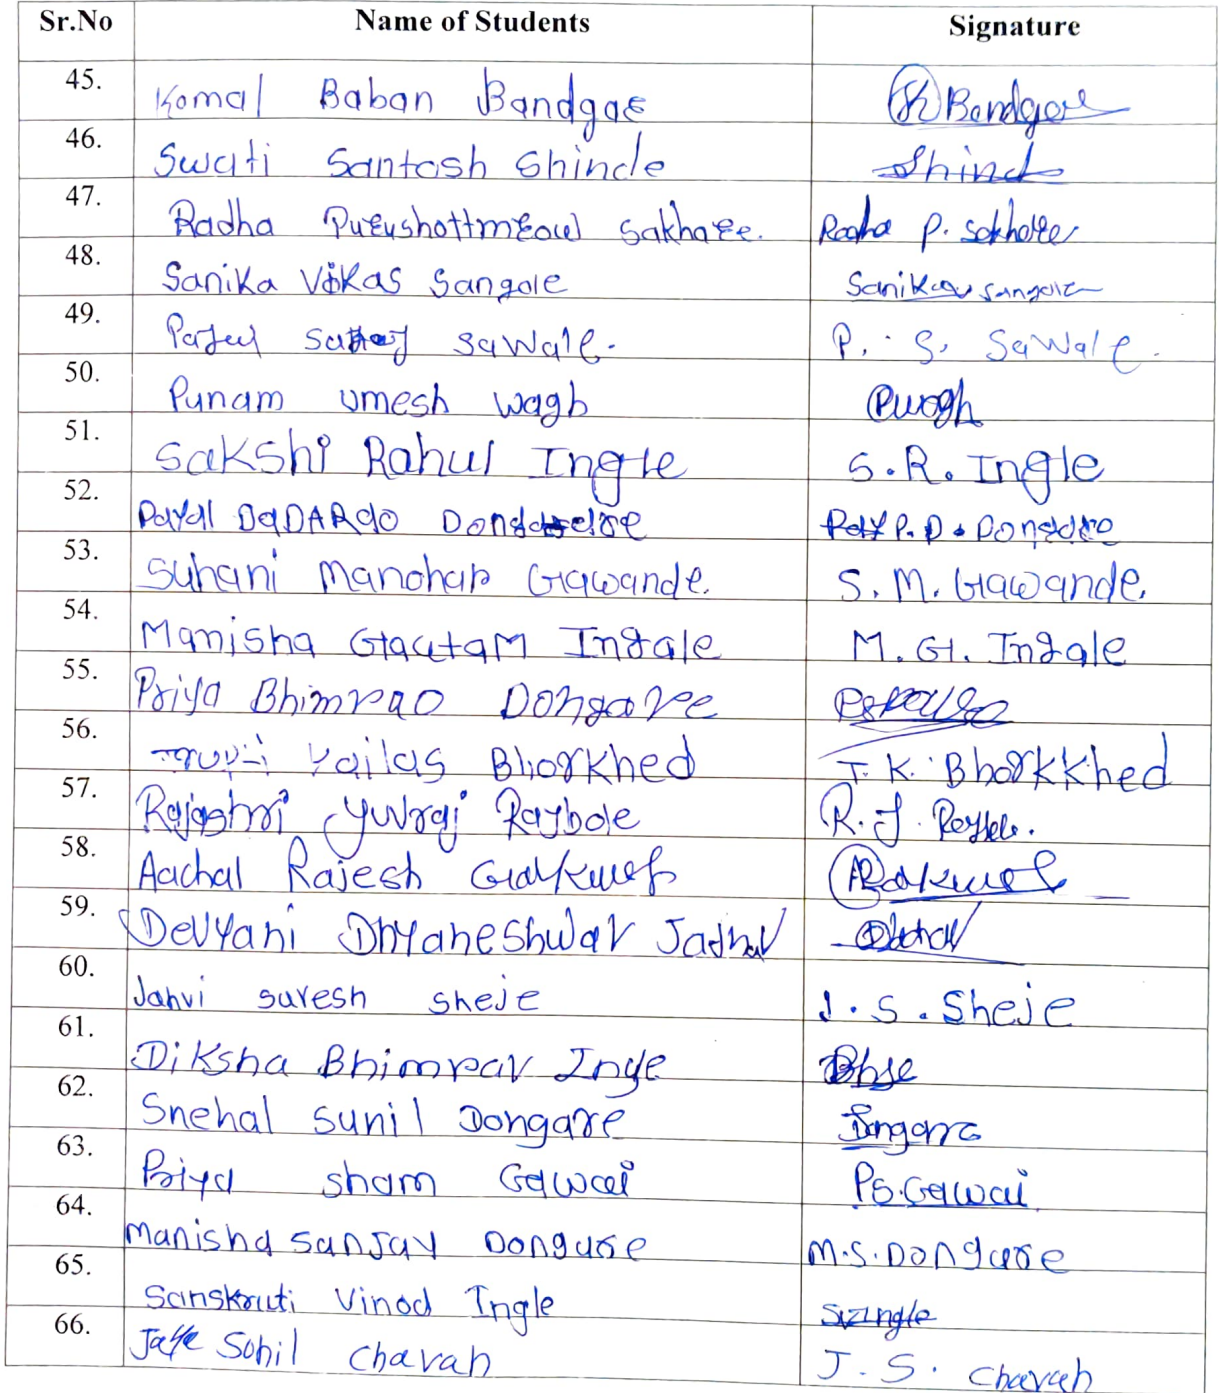 Sr.No Name of Students Signature
45. Komal Baban Bandgae Bandgore
46. Swati Santosh Shinde Shind
47. Radha Sakharee. Radha P. Sakharee
48. Sanika Vikas Sangole Sanika Sangole
49. Sawale. P. S. Sawale.
50. Punam Umesh Wagh Pwagh
51. Sakshi Rahul Ingle S.R. Ingle
52. Payal DaDARao P.D. Dongare
53. Suhani Manohar Gawande. S. M. Gawande.
54. Manisha Gautam Ingale M. G. Ingale
55. Priya Bhimrao Dongare
56. Kailas Bhorkhed J. K. Bhorkkhed
57. Rajashri Yuvraj Raybole R. J.
58. Aachal Rajesh
59. Devyani Dnyaneshwar Jadhav
60. Janvi suresh sheje J. S. Sheje
61. Diksha Bhimrav Inge
62. Snehal Sunil Dongare
63. Priya sham Gawai PS.Gawai
64. Manisha Sanjay Dongare M.S.Dongare
65. Sanskruti Vinod Ingle SVIngle
66. Sohil Chavan J. S. Chavan